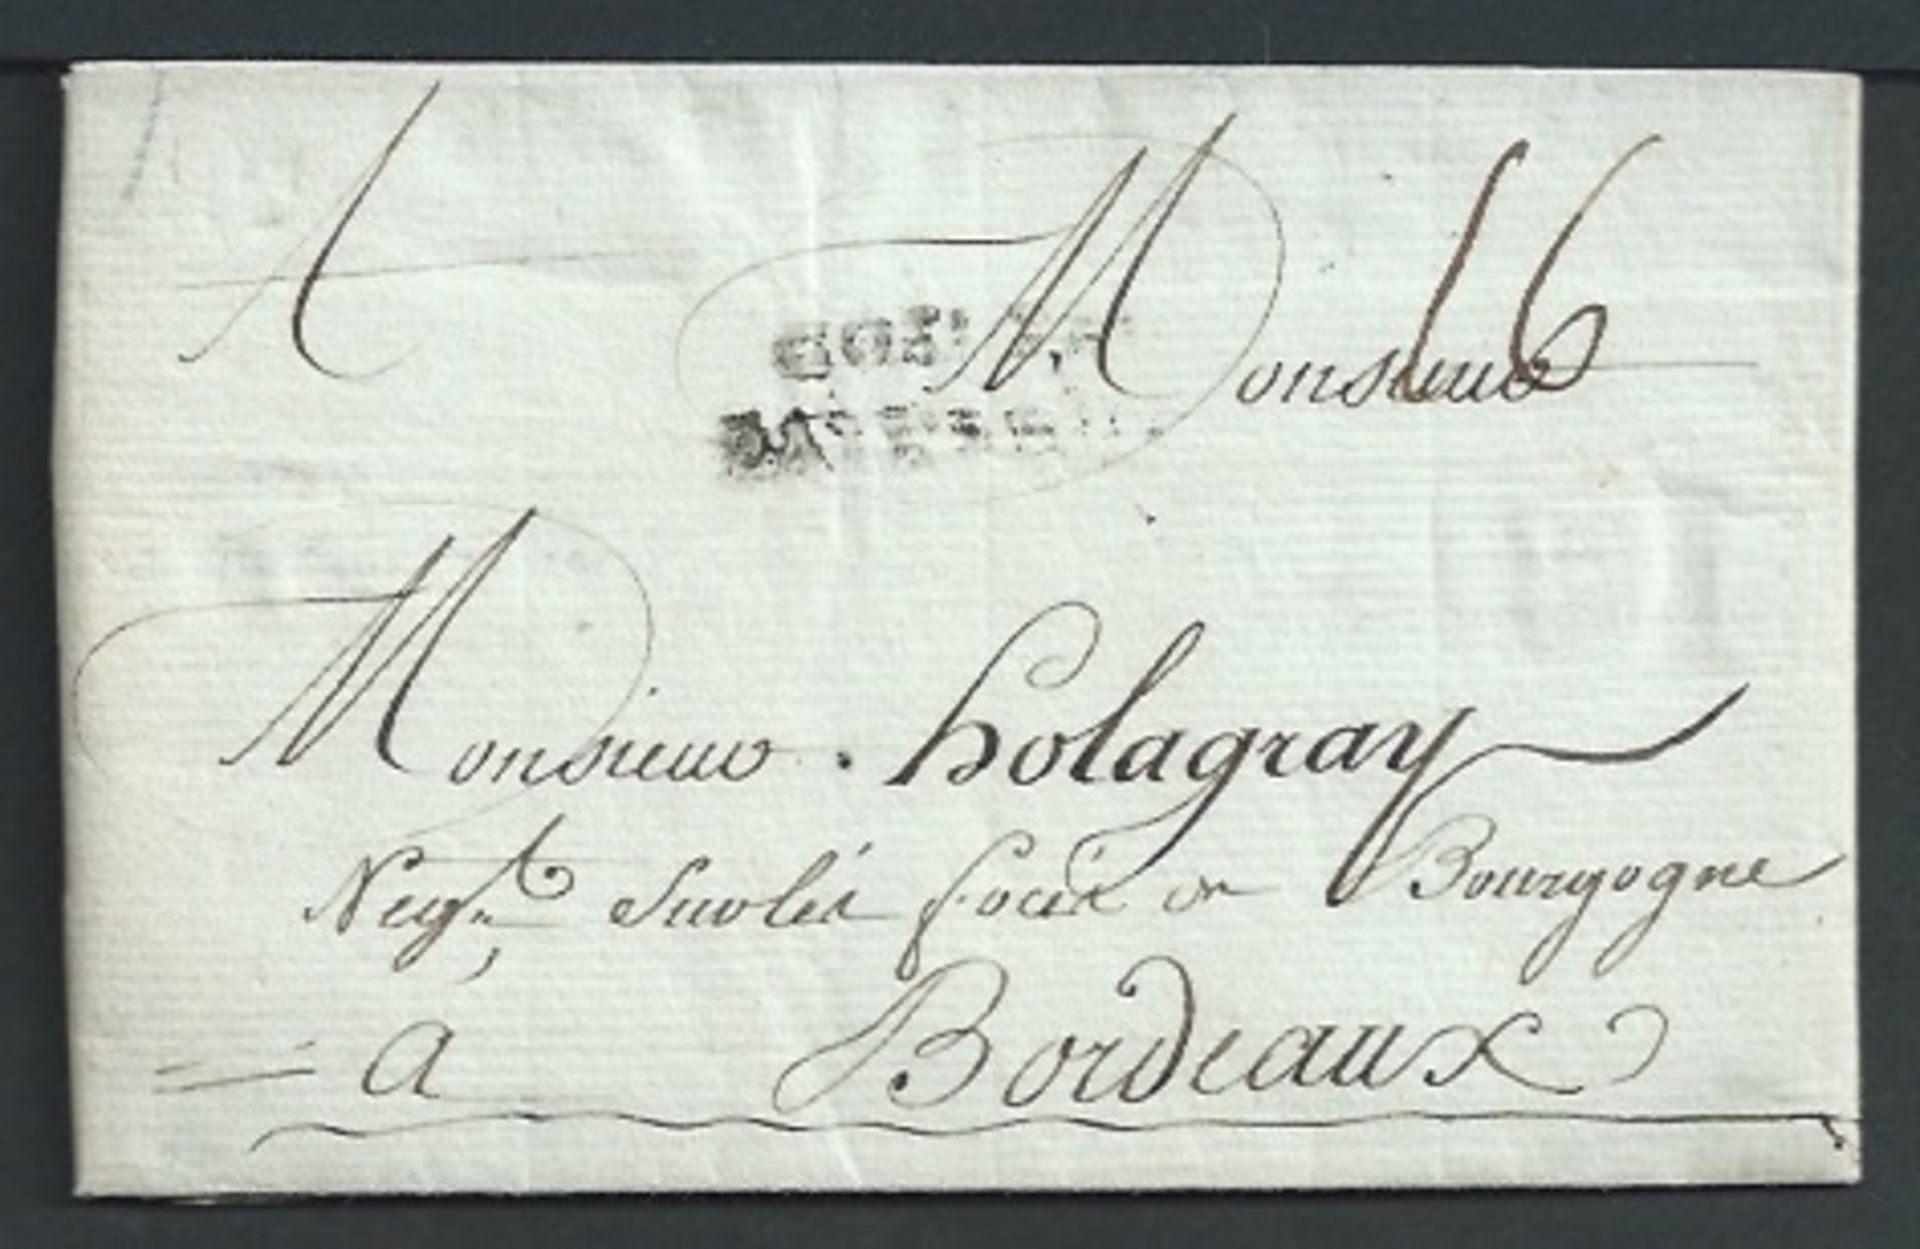 A Monsieur 16
Monsieur holagray
Neg.t Sur les fossés de Bourgogne
à Bordeaux